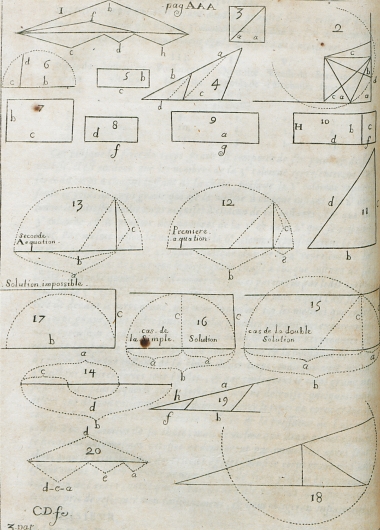 pag AAA
1
b
f
c
d
h
3
a a
2
c
b
c a a
d
6
c b
5 b
c
b
a
4
c
d
7
b
c
8
d
f
9
a
g
10
H b c
d f
d
11
b
13
Seconde
Aequation
c
b
a
12
Premiere
aequation
c
b
e
Solution impossible
17
c
b
a
16
cas de
la simple Solution
c
c
a a
b
15
cas de la double
Solution
c
c
a a
b
14
c
a
d
b
h a
19
f b
d
20
d-c-a
e
a
C.D.fe.
18